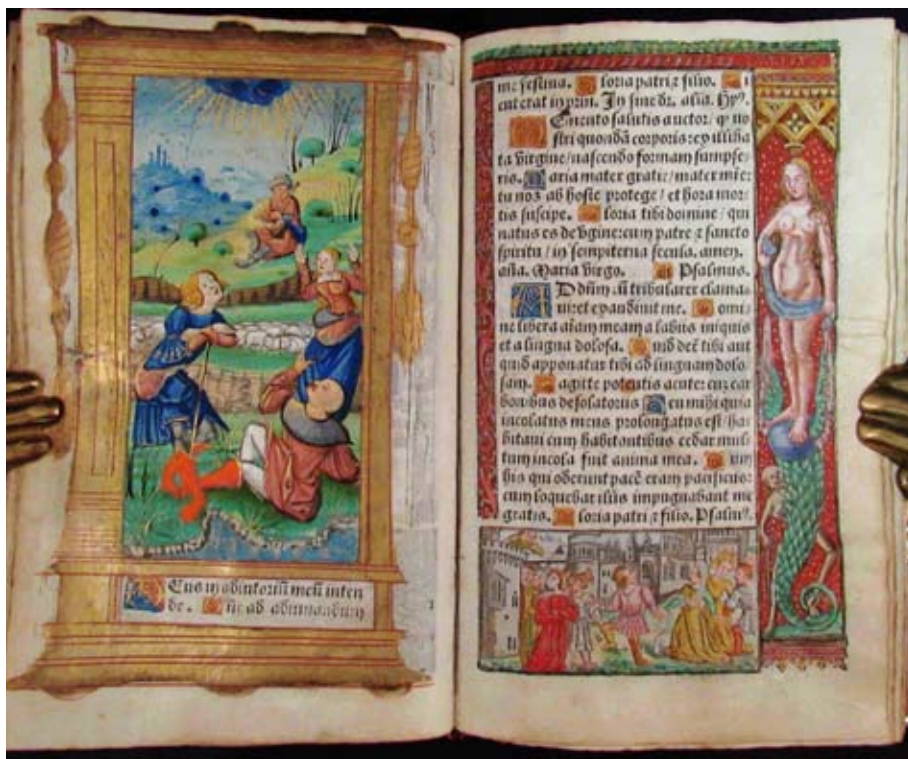 Eus in adiutoriū meū inten
de. Dn̄e ad adiuuandum
me festina. Gloria patri ⁊ filio. Si
cut erat in prin. In fine dr̄. alla. Hy9.
Memento salutis auctor / q
stri quondā corporis: ex illiba
ta virgine / nascendo formam sumpse
ris. Maria mater gratie / mater mīe:
tu nos ab hoste protege / et hora mor
tis suscipe. Gloria tibi domine / qui
natus es de v̄gine: cum patre ⁊ sancto
spiritu / in sempiterna secula. amen.
aña. Maria virgo. Psalmus.
AD dn̄m cū tribularer clama
ui: et exaudiuit me. Domi
ne libera aīam meam a labiis iniquis
et a lingua dolosa. Quid det̄ tibi aut
quid apponatur tibi ad linguam dolo
sam. Sagitte potentis acute: cum car
bonibus desolatoriis Heu mihi quia
incolatus meus prolongatus est / ha
bitaui cum habitantibus cedar: mul
tum incola fuit anima mea. Cum
his qui oderunt pacē eram pacificus:
cum loquebar illis impugnabant me
gratis. Gloria patri ⁊ filio. Psalm9.